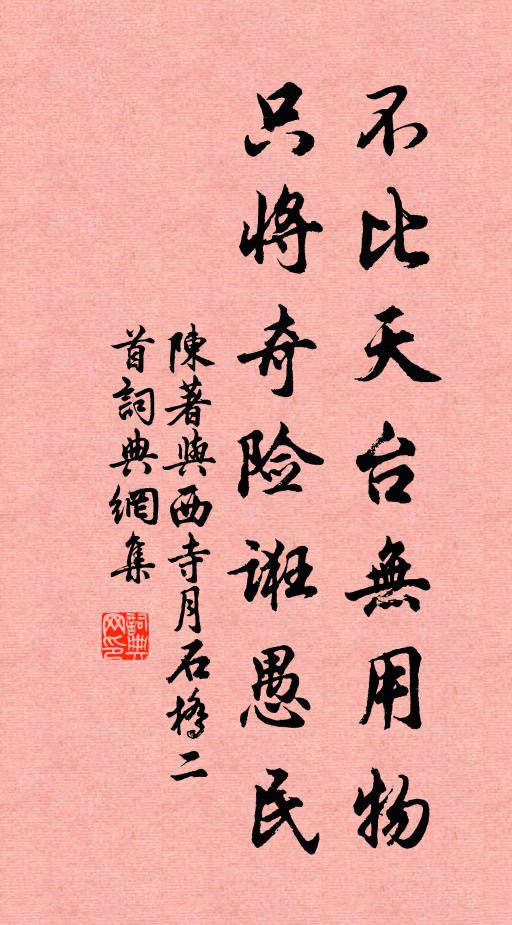 不比天台無用物
只将奇险诳愚民
陳著與西寺月石橋二
首詞典網集
詞典網印